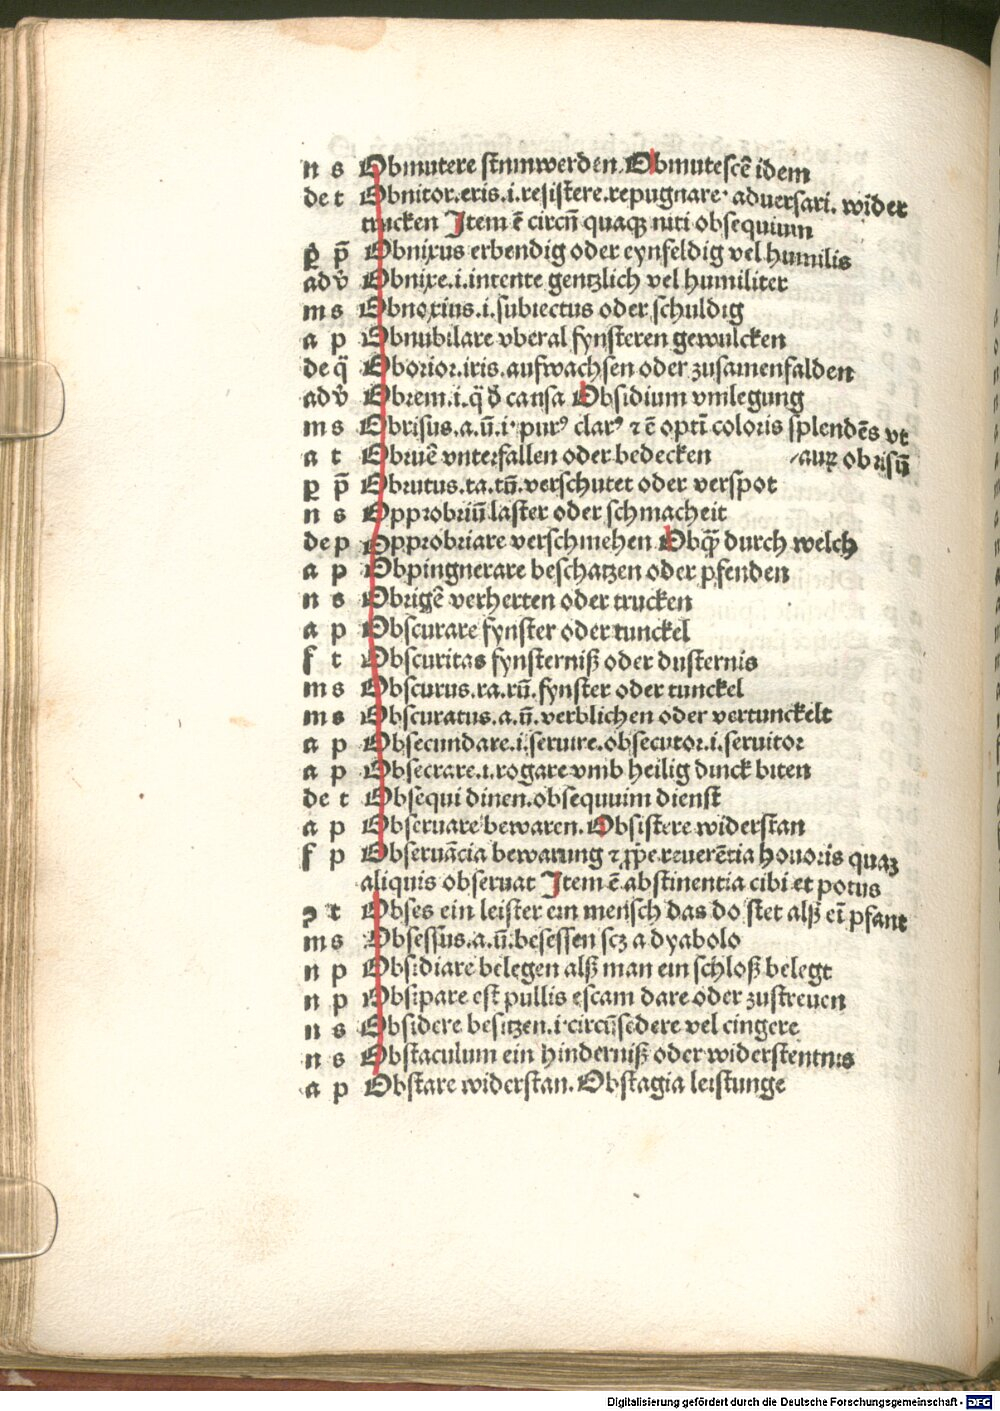 n s Obmutere stumwerden. Obmutescē idem
de t Obnitor.eris.i.resistere.repugnare. adversari. wider
trucken Item ē circū quaqꝫ niti obsequium
ꝑ p̄ Obnixus erbendig oder eynfeldig vel humilis
adv̄ Obnixe.i.intente gentzlich vel humiliter
m s Obnoxius.i.subiectus oder schuldig
a p Obnubilare vberal fynsteren gewulcken
de q̄ Oborior.iris.aufwachsen oder zusamenfalden
adv̄ Obrem.i.q̄ d̄ causa Obsidium vmlegung
m s Obrisus.a.ū.i.purꝰ clarꝰ ⁊ ē opti coloris splendēs vt
a t Obruē vnterfallen oder bedecken aurꝫ obrisū
ꝑ p̄ Obrutus.ta.tū.verschutet oder verspot
n s Opprobriū laster oder schmacheit
de p Opprobriare verschmehen Obqꝫ durch welch
a p Obpingnerare beschatzen oder pfenden
n s Obrigē verherten oder trucken
a p Obscurare fynster oder tunckel
f t Obscuritas fynsterniß oder dusternis
m s Obscurus.ra.rū.fynster oder tunckel
m s Obscuratus.a.ū.verblichen oder vertunckelt
a p Obsecundare.i.seruire.obsecutor.i.seruitor
a p Obsecrare.i.rogare vmb heilig dinck biten
de t Obsequi dinen.obsequuim dienst
a p Obseruare bewaren. Obsistere widerstan
f p Obseruācia bewarung ⁊ ꝓpe.reuerētia honoris quaꝫ
aliquis obseruat Item ē abstinentia cibi et potus
ꝯ t Obses ein leister ein mensch das do stet alß ei pfant
m s Obsessus.a.ū.besessen scꝫ a dyabolo
n p Obsidiare belegen alß man ein schloß belegt
n p Obsipare est pullis escam dare oder zustreuen
n s Obsidere besitzen.i.circūsedere vel cingere
n s Obstaculum ein hinderniß oder widerstentnis
a p Obstare widerstan. Obstagia leistunge
Digitalisierung gefördert durch die Deutsche Forschungsgemeinschaft - DFG